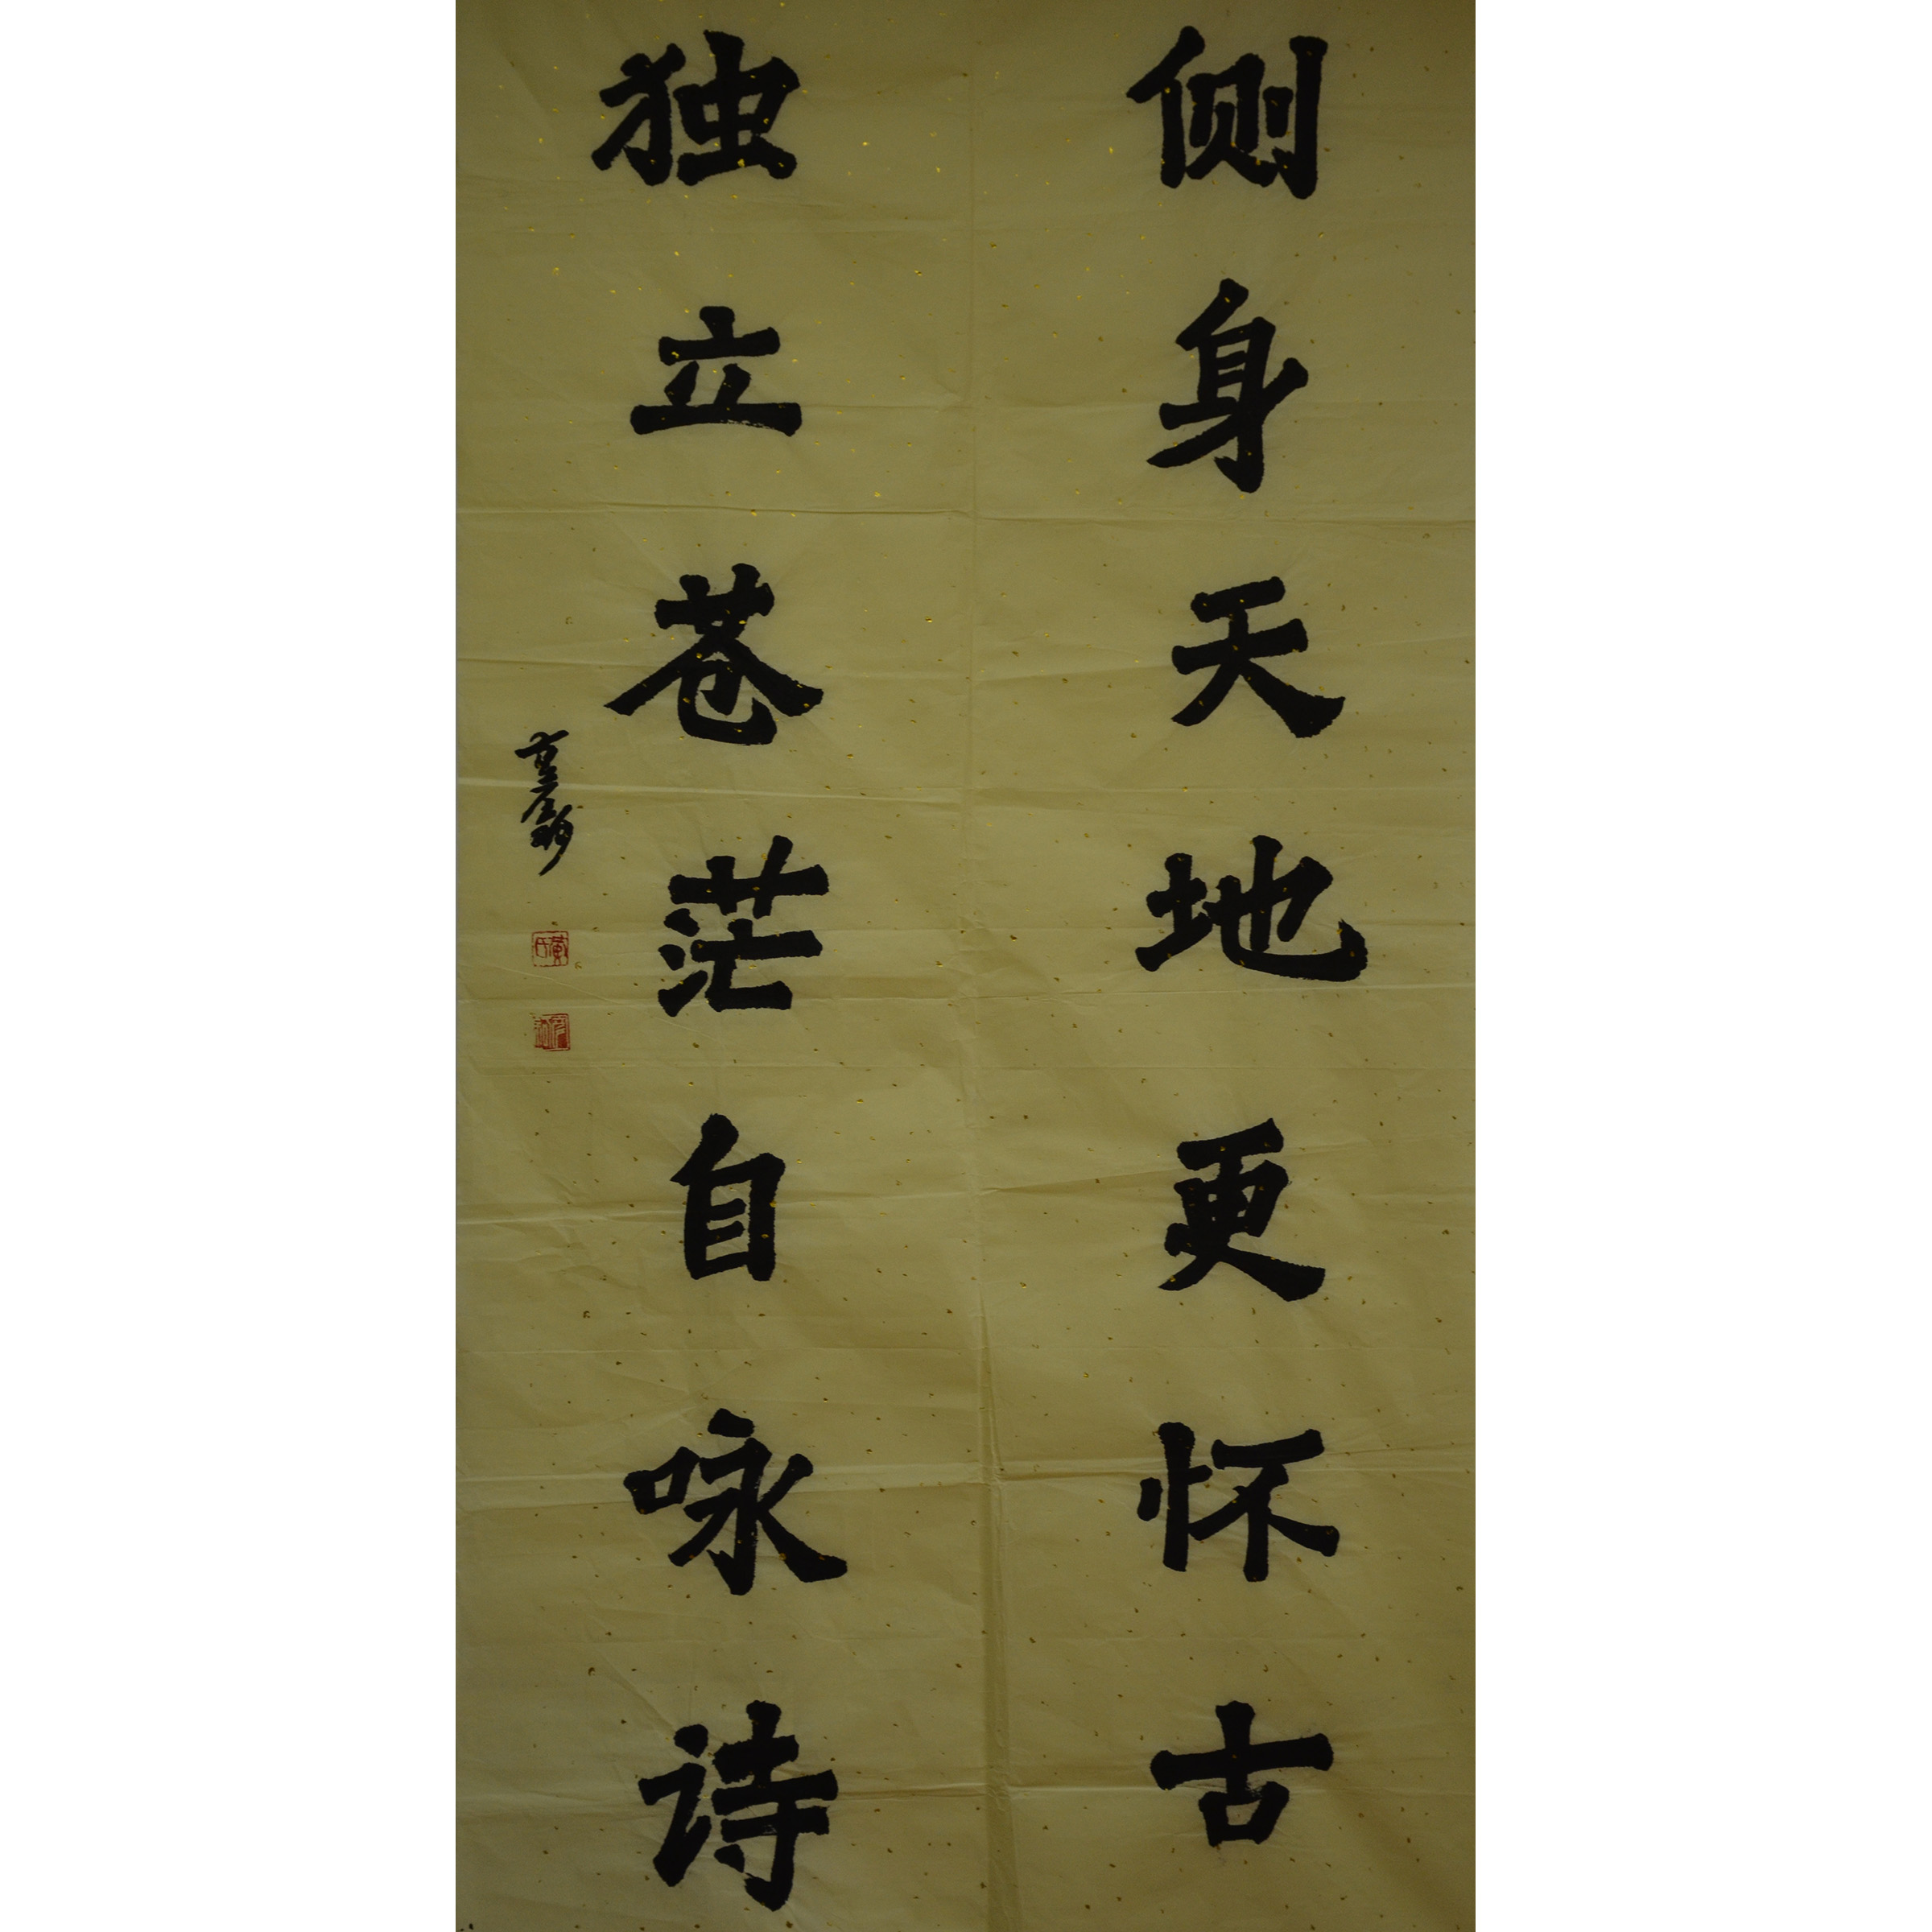 侧身天地更怀古
独立苍茫自咏诗
黄氏